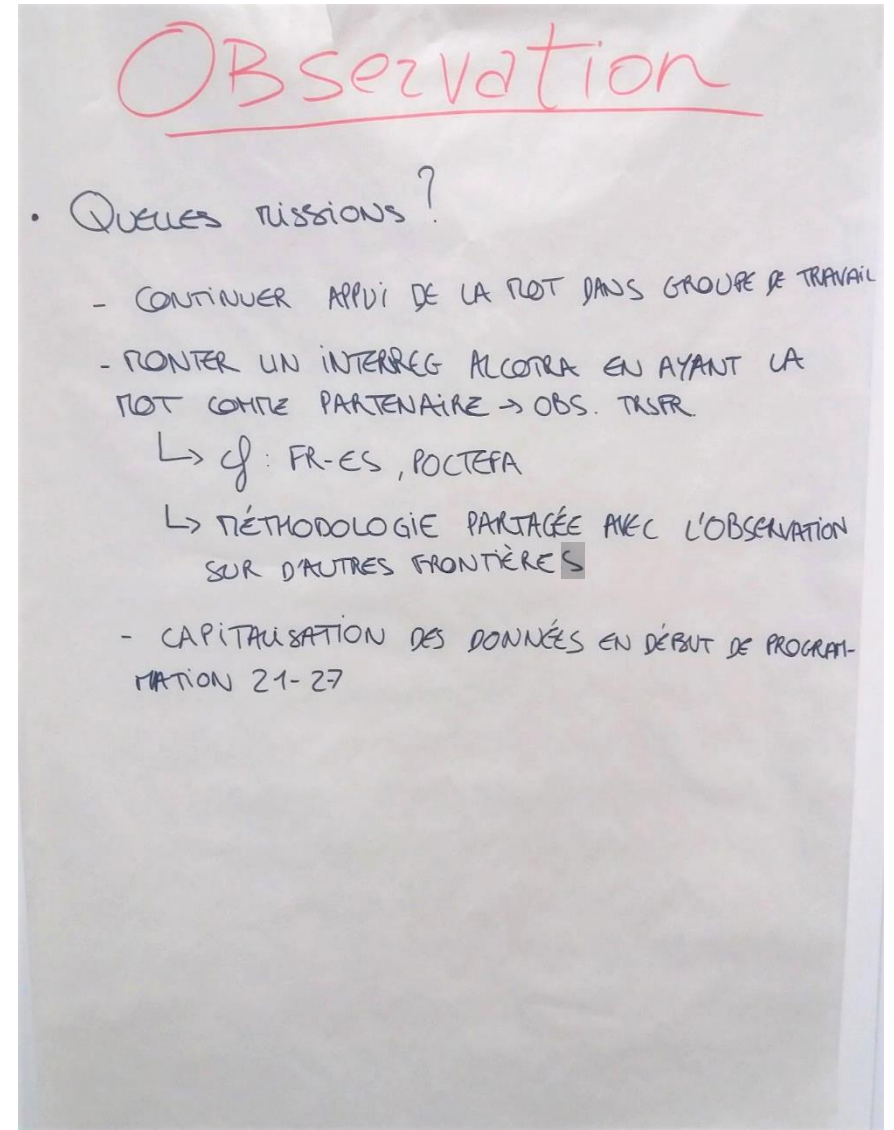 OBservation
• QUELLES MISSIONS?
- CONTINUER APPUI DE LA MOT DANS GROUPE DE TRAVAIL
- MONTER UN INTERREG ALCOTRA EN AYANT LA
MOT COMME PARTENAIRE → OBS. TRSFR.
↳ cf : FR-ES, POCTEFA
↳ MÉTHODOLOGIE PARTAGÉE AVEC L'OBSERVATION
SUR D'AUTRES FRONTIÈRES
- CAPITALISATION DES DONNÉES EN DÉBUT DE PROGRAM-
MATION 21-27